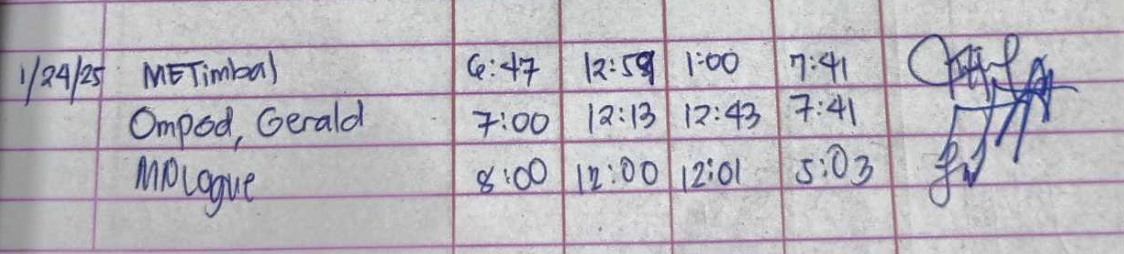 1/24/25 METimbal 6:47 12:59 1:00 7:41
Ompod, Gerald 7:00 12:13 12:43 7:41
MDLogue 8:00 12:00 12:01 5:03